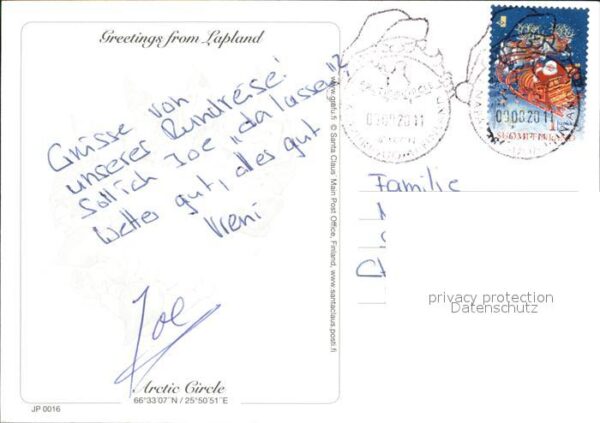 Greetings from Lapland
Grüsse von
unserer Rundreise!
Sollich Joe „da lassen"?
Wetter gut, alles gut
Vreni
Joe
Arctic Circle
66°33'07"N / 25°50'51"E
JP 0016
www.gefu.fi © Santa Claus' Main Post Office, Finland, www.santaclaus.posti.fi
SUOMI FINLAND
1
Familie
privacy protection
Datenschutz